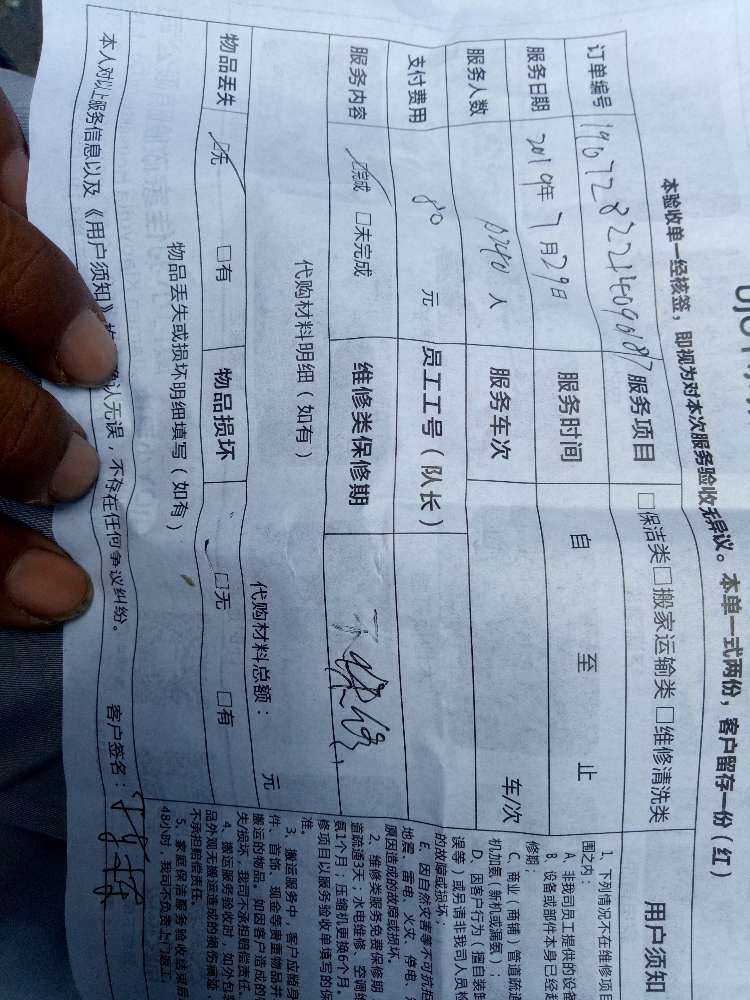 本验收单一经核签，即视为对本次服务验收无异议。本单一式两份，客户留存一份（红）
订单编号
服务项目 □保洁类□搬家运输类 □维修清洗类
服务日期 2019年7月29日 服务时间 自 至 止
服务人数 人 服务车次 车/次
支付费用 80 元 员工工号（队长）
服务内容 ☑完成 □未完成 维修类保修期
代购材料明细（如有）
代购材料总额： 元
物品丢失 ☑无 □有 物品损坏 □无 □有
物品丢失或损坏明细填写（如有）
本人对以上服务信息以及《用户须知》 认无误，不存在任何争议纠纷。 客户签名：
用户须知
1、下列情况不在维修项目
围之内：
A、非我司员工提供的设备
B、设备或部件本身已经超
修期；
C、商业（商铺）管道疏通
机加氨（新机或漏氨）；
D、因客户行为（擅自装卸
误等）或另请非我司人员检
的故障或损坏；
E、因自然灾害等不可抗拒
地震、雷电、火灾、停电、
原因造成的故障或损坏。
2、维修类服务免费保修期
道疏通3天；水电维修、空调
氨1个月；压缩机更换6个月。
修项目以服务验收单填写的保
准。
3、搬运服务中，客户应随身
件、首饰、现金等贵重物品并
搬运的物品。如因客户造成的
失/损坏，我司不承担赔偿责任。
4、搬运服务验收时，如外包
品外观无搬运造成的损伤痕迹
不承担赔偿责任。
5、家庭保洁服务验收结束后
48小时，我司不负责上门返工。